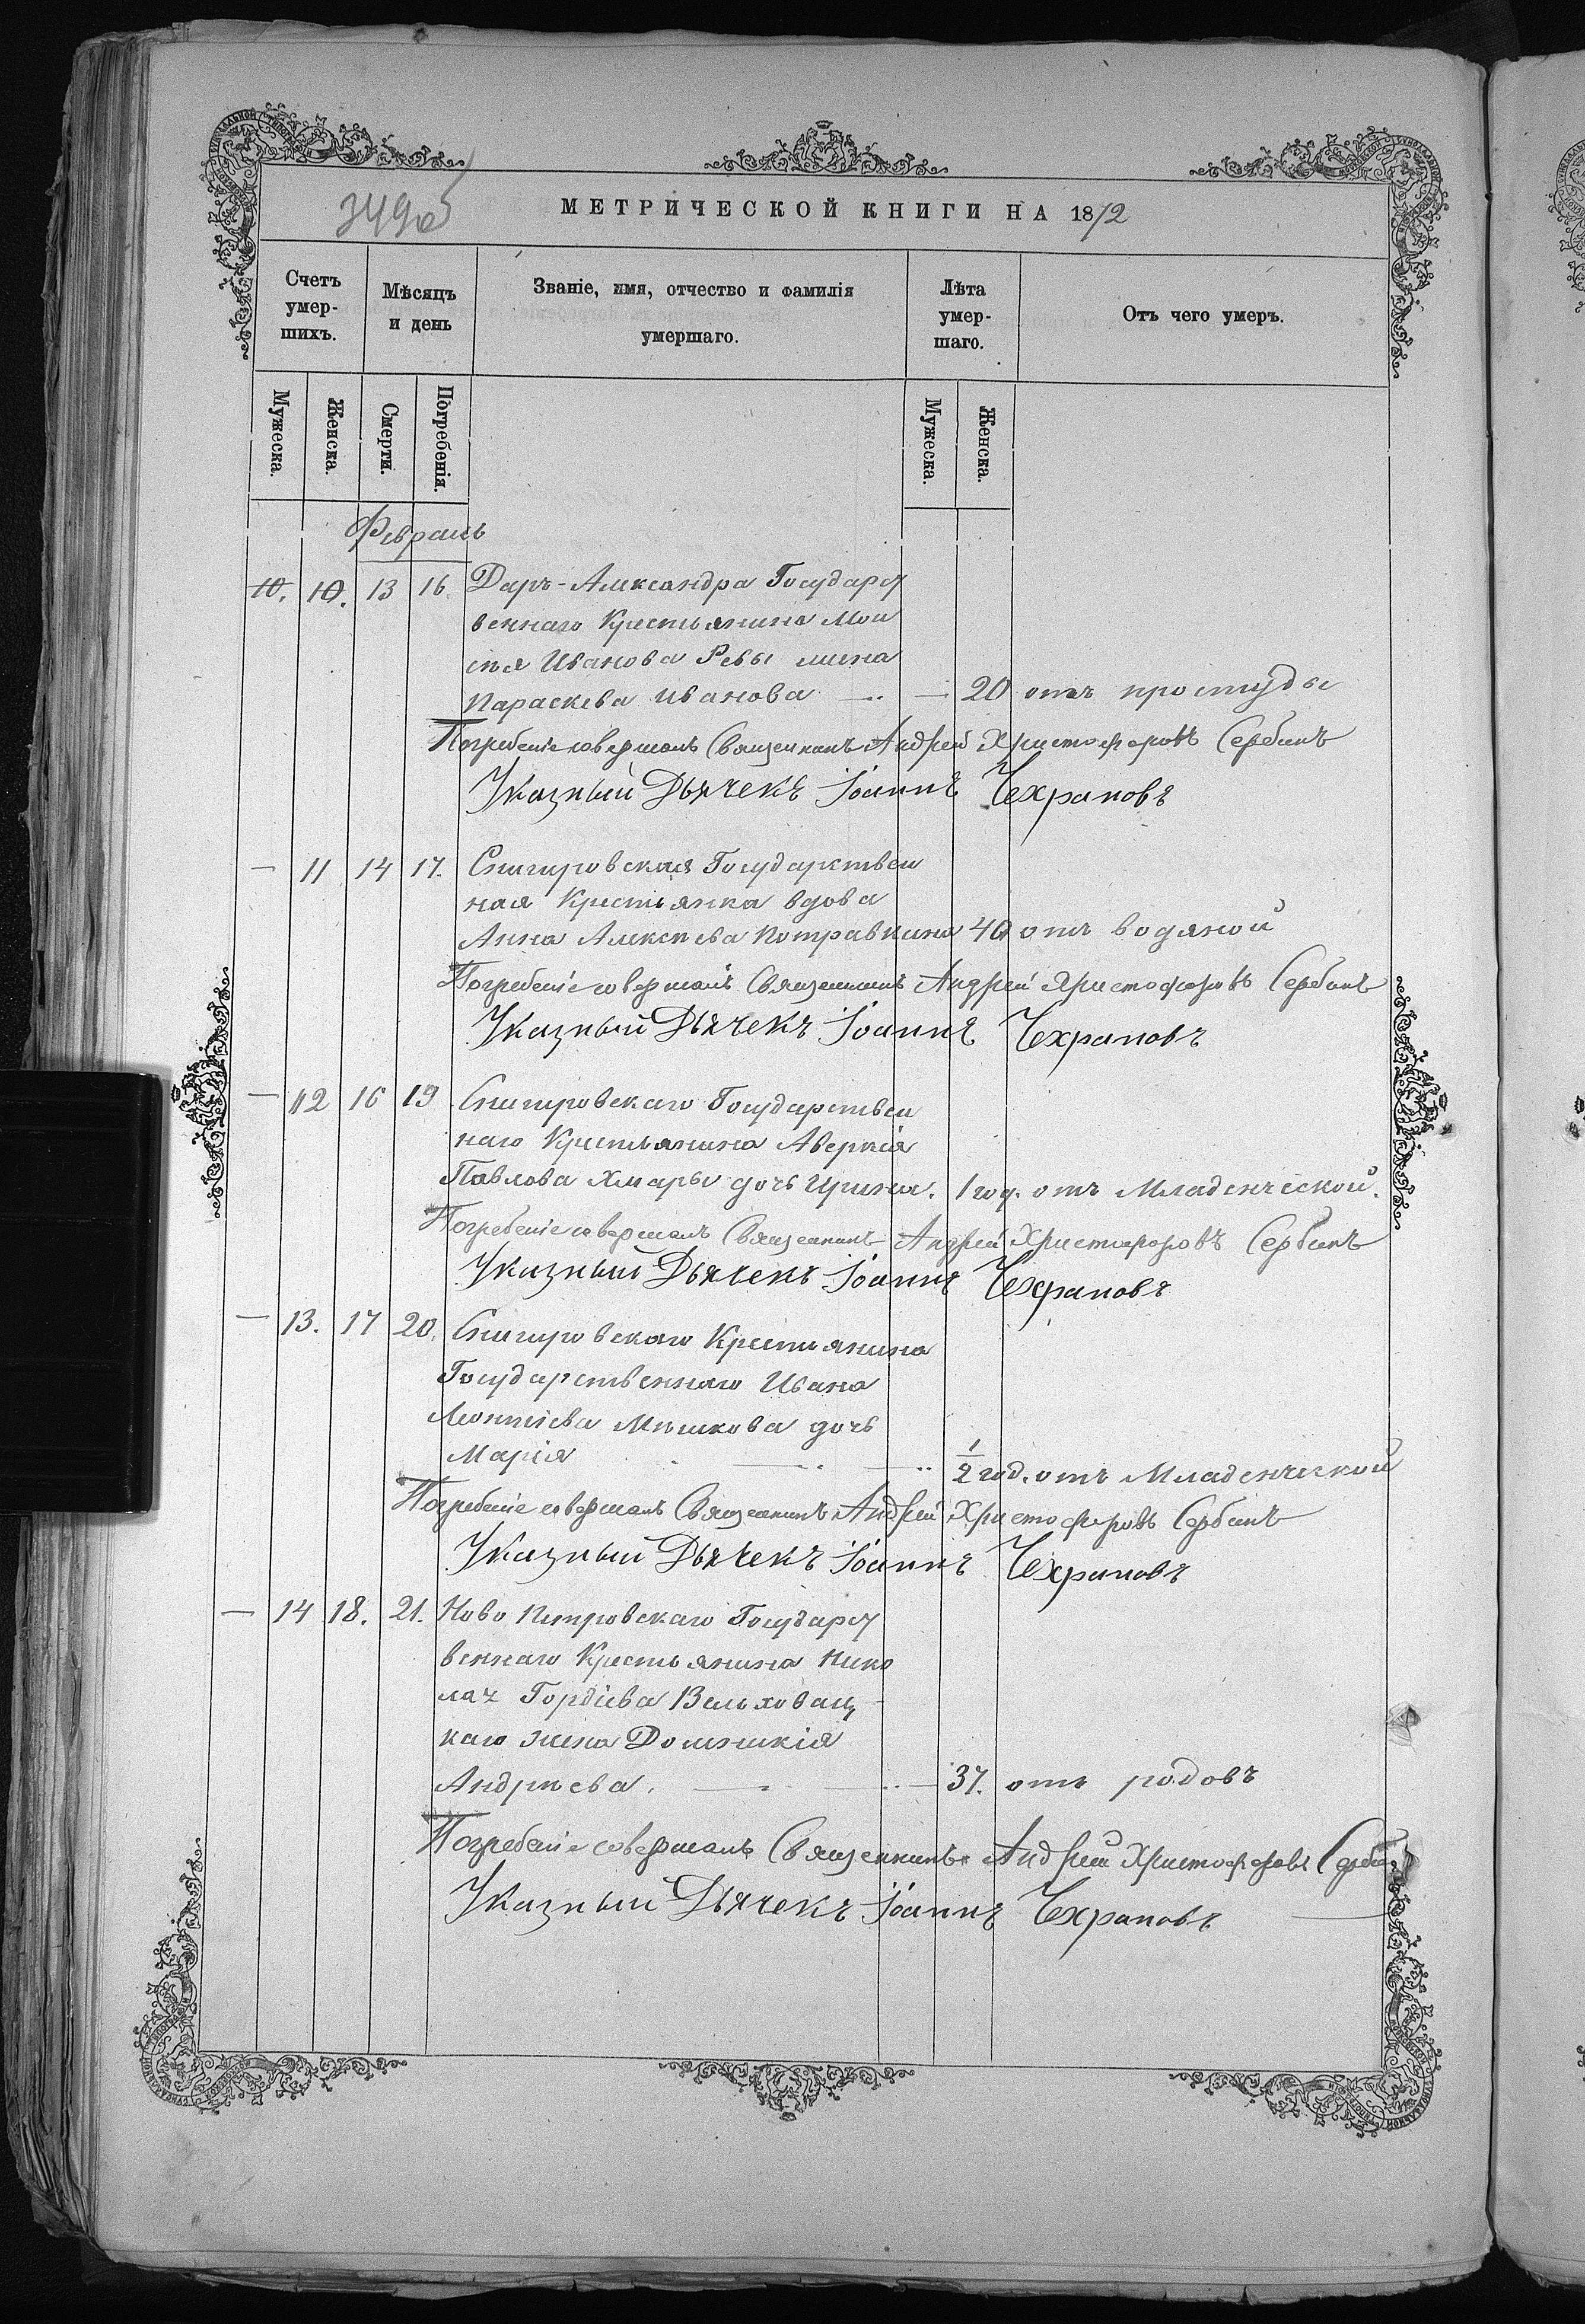 349об
МЕТРИЧЕСКОЙ КНИГИ НА 1872
Счетъ умер-шихъ.
Мѣсяцъ и день
Званіе, имя, отчество и фамилія умершаго.
Лѣта умер-шаго.
Отъ чего умеръ.
Мужеска. Женска. Смерти. Погребенія. Мужеска. Женска.
Февраль
10. 10. 13 16 Даръ-Александра Государст
веннаго Крестьянина Мои
сея Иванова Ревы жена
Параскева Иванова — 20 отъ простуды
Погребеніе совершалъ Священникъ Андрей Христофоровъ Сербинъ
Указный Дьячекъ Іоаннъ Чехрановъ
— 11 14 17. Снигировская Государствен
ная Крестьянка вдова
Анна Алексѣева 40 отъ водяной
Погребеніе совершалъ Священникъ Андрей Христофоровъ Сербинъ
Указный Дьячекъ Іоаннъ Чехрановъ
— 12 16 19 Снигировскаго Государствен
наго Крестьянина Аверкія
Павлова Хмары дочь Ирина. 1 год. отъ Младенческой.
Погребеніе совершалъ Священникъ Андрей Христофоровъ Сербинъ
Указный Дьячекъ Іоаннъ Чехрановъ
— 13. 17 20. Снигировскаго Крестьянина
Государственнаго Ивана
Леонтіева Мѣшкова дочь
Марія — — 1/2 год. отъ Младенческой
Погребеніе совершалъ Священникъ Андрей Христофоровъ Сербинъ
Указный Дьячекъ Іоаннъ Чехрановъ
— 14 18. 21. Ново Петровскаго Государст
веннаго Крестьянина Нико
лая Гордіева Вельховец
каго жена Домникія
Андреева. — — 37. отъ родовъ
Погребеніе совершалъ Священникъ Андрей Христофоровъ Сербинъ
Указный Дьячекъ Іоаннъ Чехрановъ —